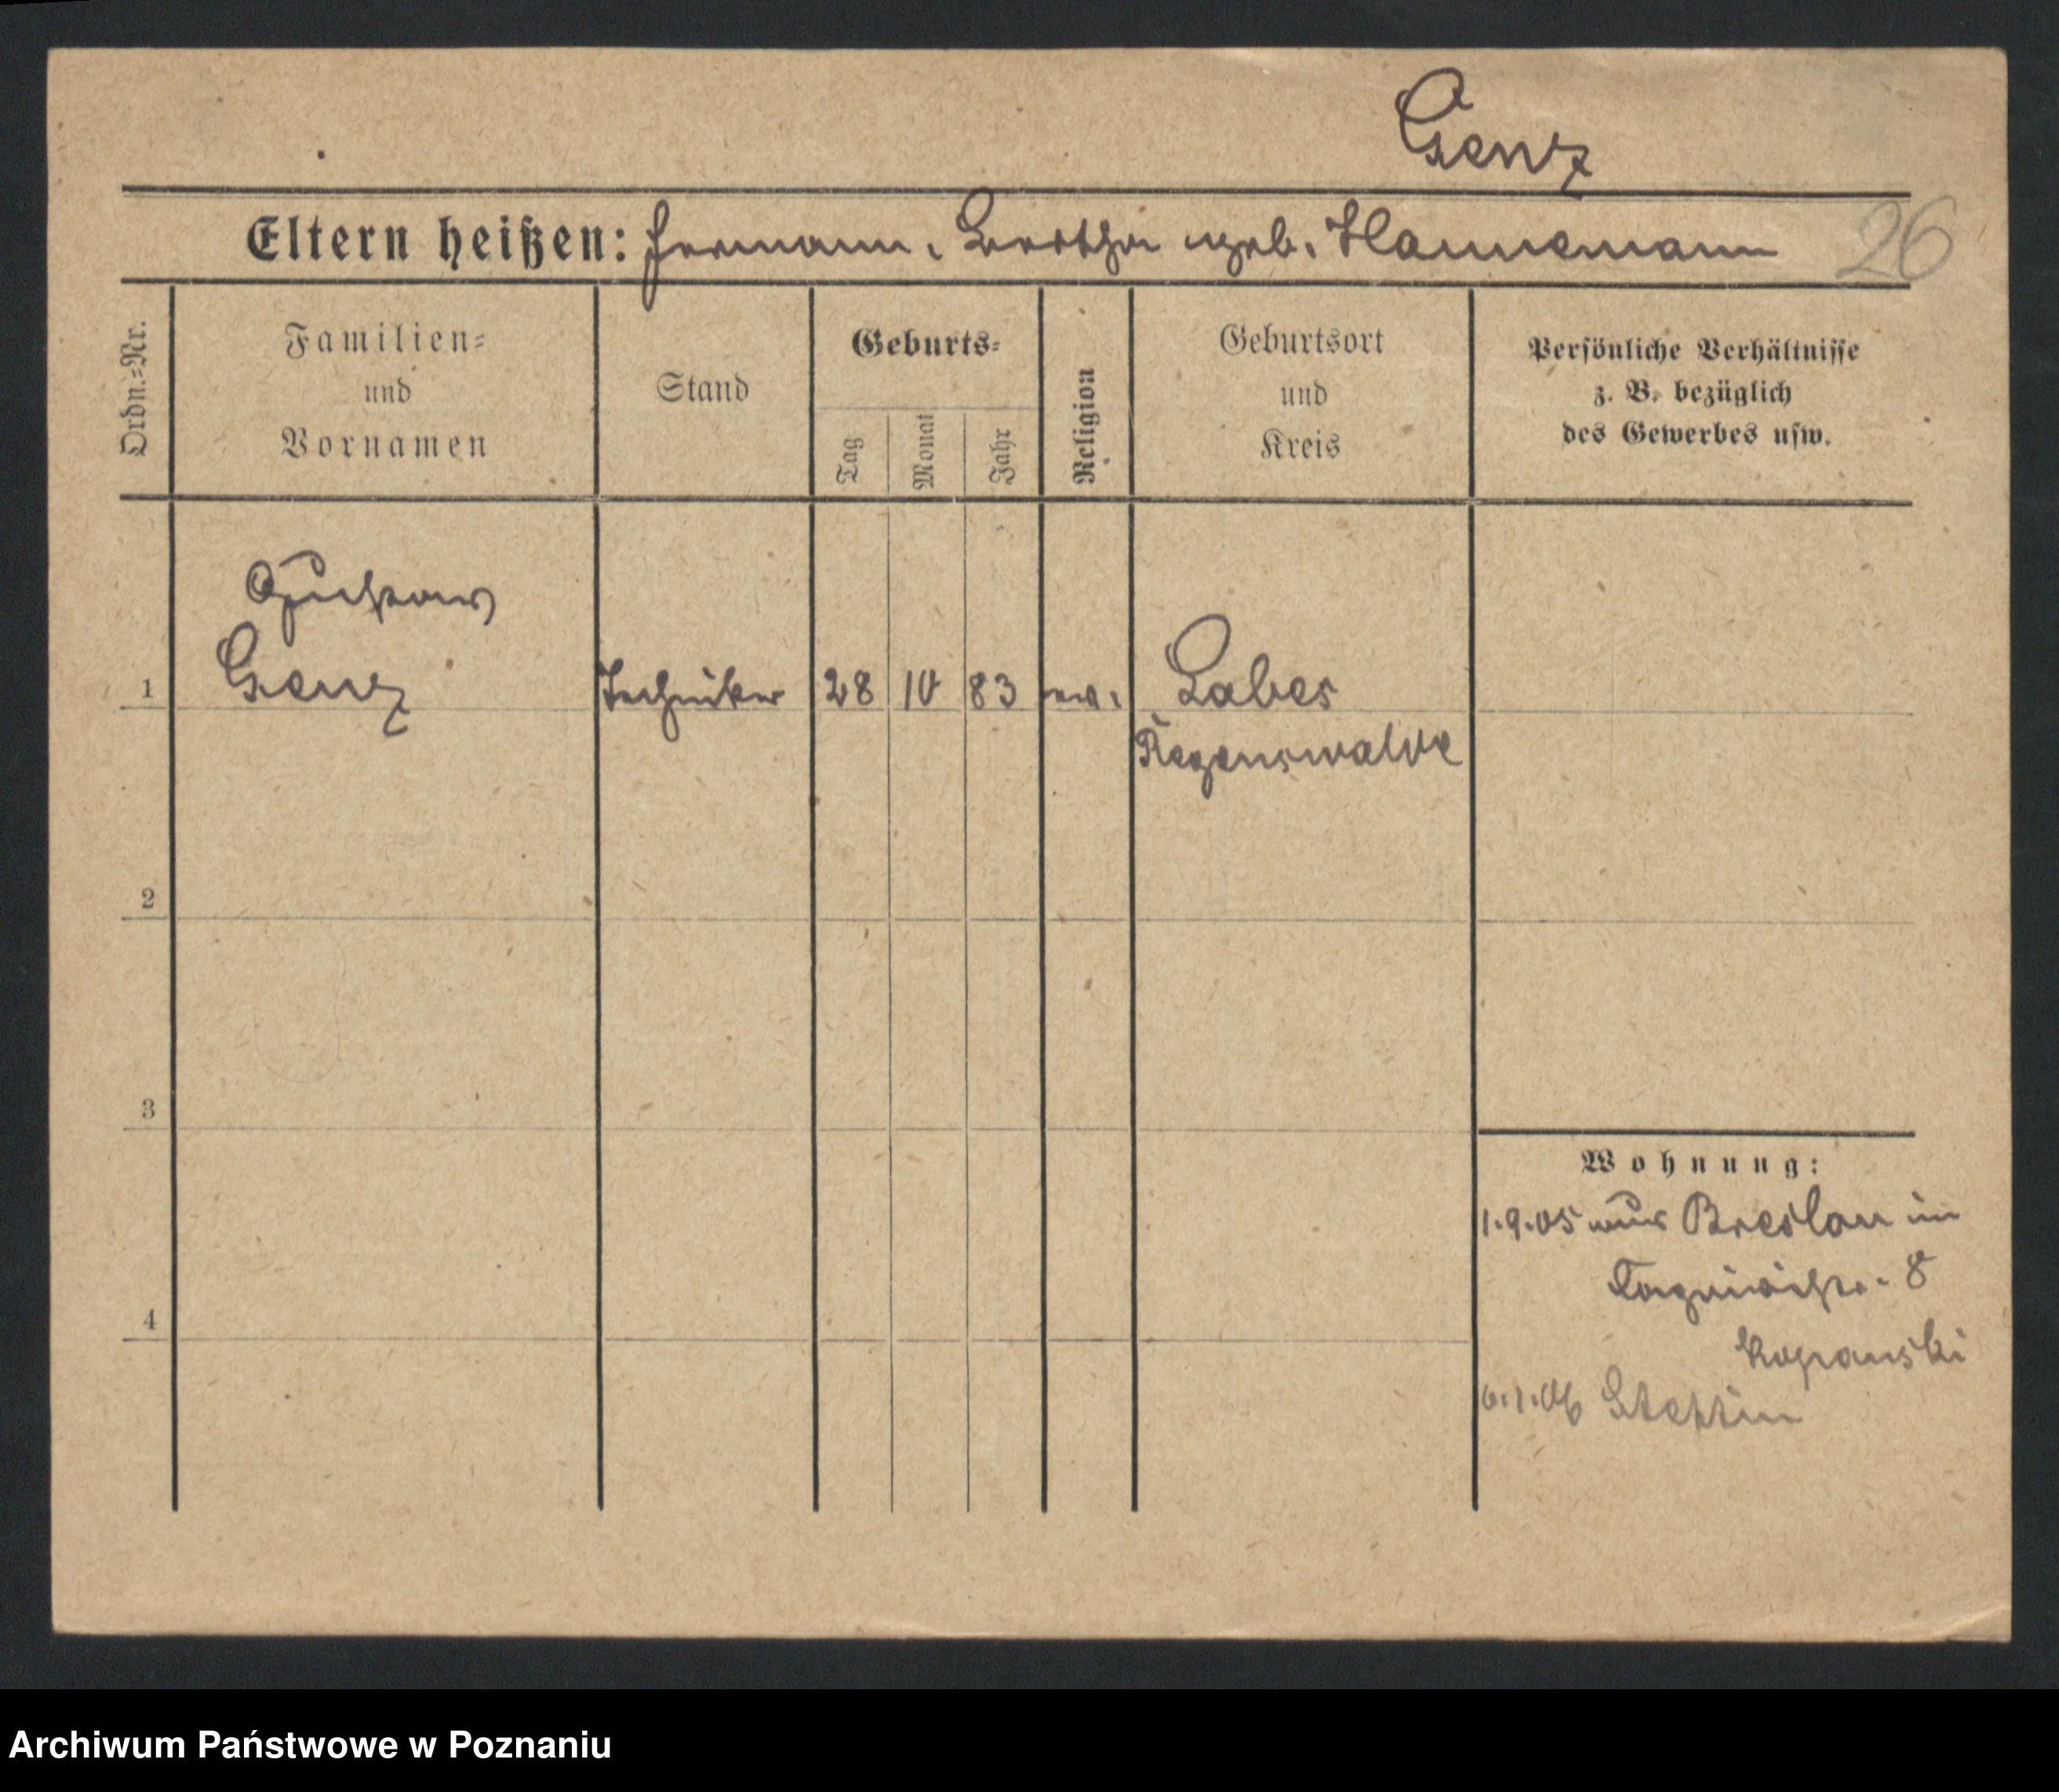 Genz
Eltern heißen: Hermann, Bertha geb. Hannemann
26
Ordn.=Nr.
Familien=
und
Vornamen
Stand
Geburts=
Tag
Monat
Jahr
Religion
Geburtsort
und
Kreis
Persönliche Verhältnisse
z. B. bezüglich
des Gewerbes usw.
Gustav
1 Genz Techniker 28 10 83 ev. Labes
Regenswalde
2
3
4
Wohnung:
1.9.05 aus Breslau in
8
Kopanski
6.1.06 Stettin
Archiwum Państwowe w Poznaniu